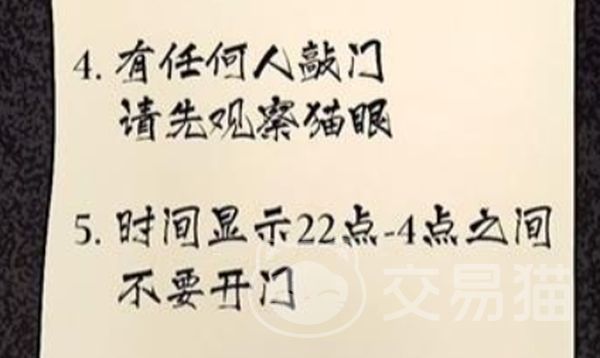 4. 有任何人敲门
请先观察猫眼
5. 时间显示22点-4点之间
不要开门
交易猫